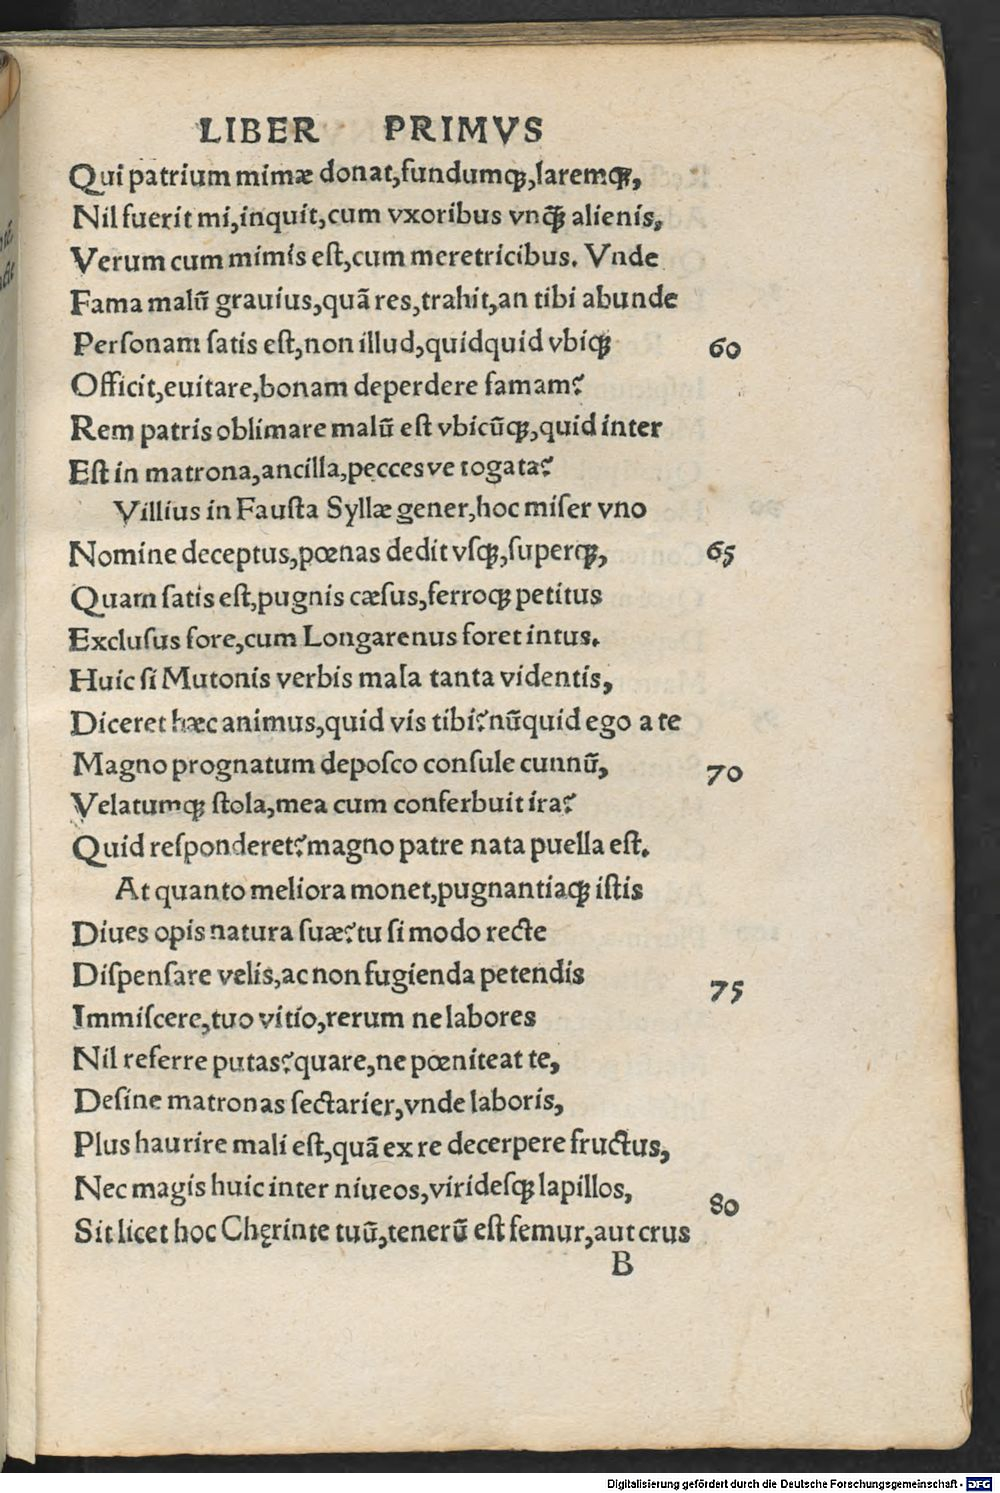 LIBER PRIMVS
Qui patrium mimæ donat,fundumqꝫ,laremqꝫ,
Nil fuerit mi,inquit,cum vxoribus vnqꝫ̃ alienis,
Verum cum mimis eſt,cum meretricibus. Vnde
Fama malũ grauius,quã res,trahit,an tibi abunde
Perſonam ſatis eſt,non illud,quidquid vbiqꝫ 60
Officit,euitare,bonam deperdere famam?
Rem patris oblimare malũ eſt vbicũqꝫ,quid inter
Eſt in matrona,ancilla,pecces ve togata?
Villius in Fauſta Syllæ gener,hoc miſer vno
Nomine deceptus,pœnas dedit vſqꝫ,ſuperqꝫ, 65
Quam ſatis eſt,pugnis cæſus,ferroqꝫ petitus
Excluſus fore,cum Longarenus foret intus.
Huic ſi Mutonis verbis mala tanta videntis,
Diceret hæc animus,quid vis tibi?nũquid ego a te
Magno prognatum depoſco conſule cunnũ, 70
Velatumqꝫ ſtola,mea cum conferbuit ira?
Quid reſponderet?magno patre nata puella eſt.
At quanto meliora monet,pugnantiaqꝫ iſtis
Diues opis natura ſuæ?tu ſi modo recte
Diſpenſare velis,ac non fugienda petendis 75
Immiſcere,tuo vitio,rerum ne labores
Nil referre putas?quare,ne pœniteat te,
Deſine matronas ſectarier,vnde laboris,
Plus haurire mali eſt,quã ex re decerpere fructus,
Nec magis huic inter niueos,virideſqꝫ lapillos, 80
Sit licet hoc Chęrinte tuũ,tenerũ eſt femur,aut crus
B
Digitalisierung gefördert durch die Deutsche Forschungsgemeinschaft - DFG